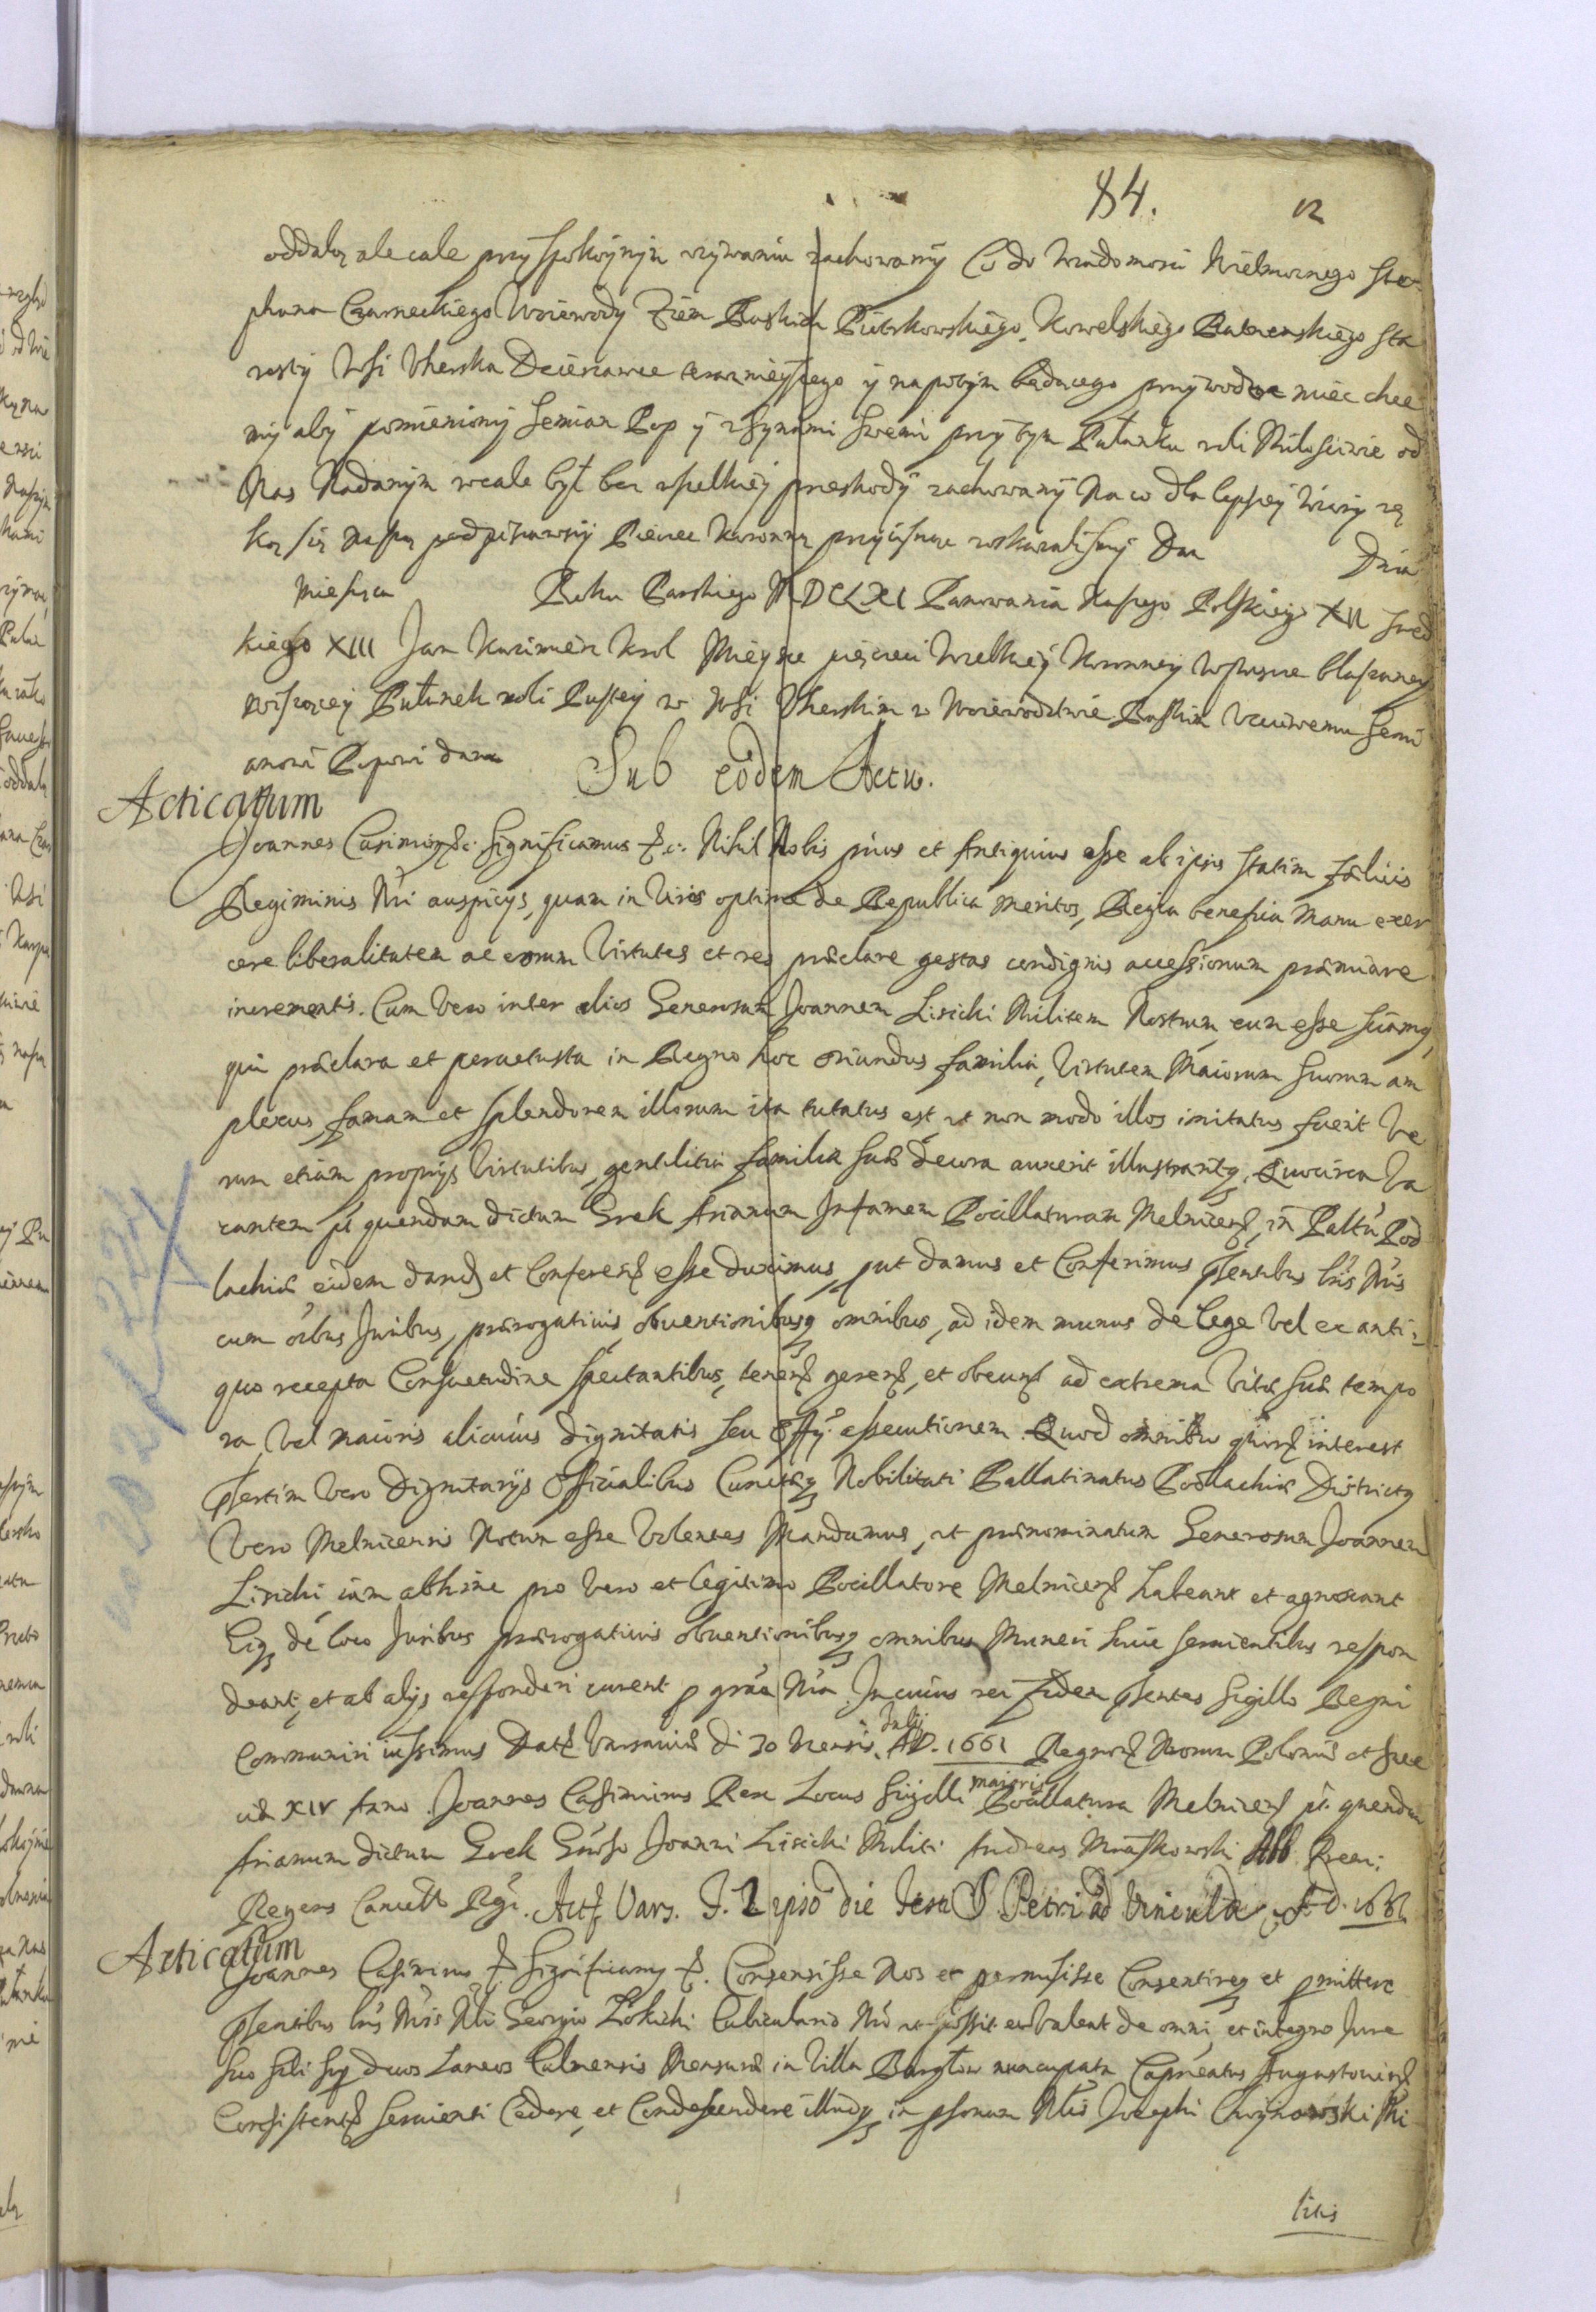 84.
oddalą ale cale przy spokoynym vzywaniu zachowamy Co do wiadomosci Wielmoznego Ste
phana Czarneckiego Woiewody Ziem Ruskich Piotrkowskiego, Kowelskiego Ratnenskiego Sta
rosty Wsi Vherska Dzierzawce terazniejszego y napotym będącego przywodząc miec chce
my aby pomieniony Semion Pop y z Synami swemi przy tym Pułanku roli Miłosciwie od
Nas Nadanym wcale był bez wszelkiey przeszkody zachowany Na co dla lepszey wiary rę
ką się naszą podpisawszy Pieczec Koronną przycisnąc roskazalismy Dan Dnia
Miesiąca Roku Panskiego MDCLXI Panowania Naszego Polskiego XII Swed
kiego XIII Jan Kazimierz Krol Mieysce pieczęci Wielkiey Koronney w puszce blaszaney
wiszącey Pułanek roli Pustey w Wsi Vherskim w Woiewodztwie Ruskim Vczciwemu Semi
anowi Popowi dany
Sub eodem Actu.
Acticatum
Joannes Casimirus &c. Significamus &c. Nihil Nobis prius et Antiquius esse ab ipsis statim fælicis
Regiminis Nri auspicijs, quam in Viros optime de Republica meritos, Regia benefica Manu exer
cere liberalitatem ac eorum Virtutes et res præclare gestas condignis accessionum præmiare
incrementis. Cum Vero inter alios Generosum Joannem Lisicki Militem Nostrum, eum esse sciamq,
qui præclara et peruetusta in Regno hoc oriundus familia, Virtutem Maiorum suorum am
plexus, famam et splendorem illorum ita tutatus est, ut non modo illos imitatus fuerit Ve
rum etiam proprijs Virtutibus, gentilitia familiæ suæ decora auxerit illustraritq. Quocirca Va
cantem p quendam dictum Grek Arianum Infamem Pocillaturam Melnicens, in Paltu Pod
lachiæ eidem dand et Conferend esse duximus, put damus et Conferimus psentibus lris Nris
cum oibus Juribus, prærogatiuis, obuentionibusq omnibus, ad idem munus de lege Vel ex anti-
quo recepta Consuetudine spectantibus, tenend gerend, et obeund ad extrema Vitæ suæ tempo
ra, Vel maioris alicuius dignitatis seu offy assecutionem. Quod omnibus quor interest
psertim Vero Dignitarijs Officialibus Cunctæq Nobilitati Pallatinatus Podlachiæ Districtq
Vero Melnicensis Notum esse Volentes Mandamus, ut prænominatum Generosum Joannem
Lisicki iam abhinc pro Vero et legitimo Pocillatore Melnicens habeant et agnoscant
Eiq de loco Juribus prærogatiuis obuentionibusq omnibus Muneri huic seruientibus respon
deant, et ab alijs responderi curent p gra Nra. In cuius rei fidem psentes Sigillo Regni
Communiri iussimus Dat Varsauiæ di 30 Mensis Julij AD. 1661 Regnor Nrorum Poloniæ et Sue
ciæ XIV Anno. Joannes Casimirus Rex Locus Sigilli maioris Pocillatura Melnicens p. quendam
Arianum dictum Grek Groso Joanni Lisicki Militi Andreas Miaskowski Abb Præm:
Regens Cancell Rgi. Act Vars. F. 2 ipso die festi S. Petri ad Vincula A. D. 1661.
Acticatum
Joannes Casimirus &. Significamq &. Consensisse Nos et permisisse Consentireq et pmittere
psentibus lris Nris Nli Georgio Łokicki Cubiculario Nro ut possit et Valeat de omni, et integro Jure
suo sibi sup duos Laneos Culmensis Mensuræ in Villa Bargłow nuncupata Capneatus Augustouiens
Consistent Seruienti Cedere, et Condescendere illudq in psonam Nlis Josephi Choynowski Mi
litis